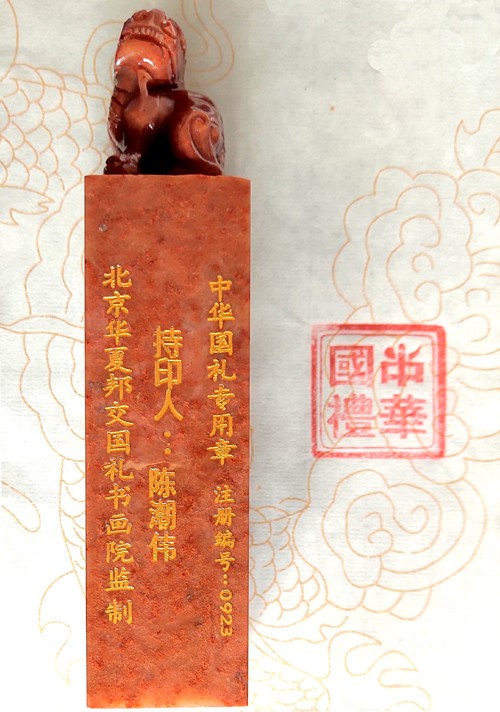 中华国礼专用章 注册编号：0923
持印人：陈潮伟
北京华夏邦交国礼书画院监制
中華
國禮